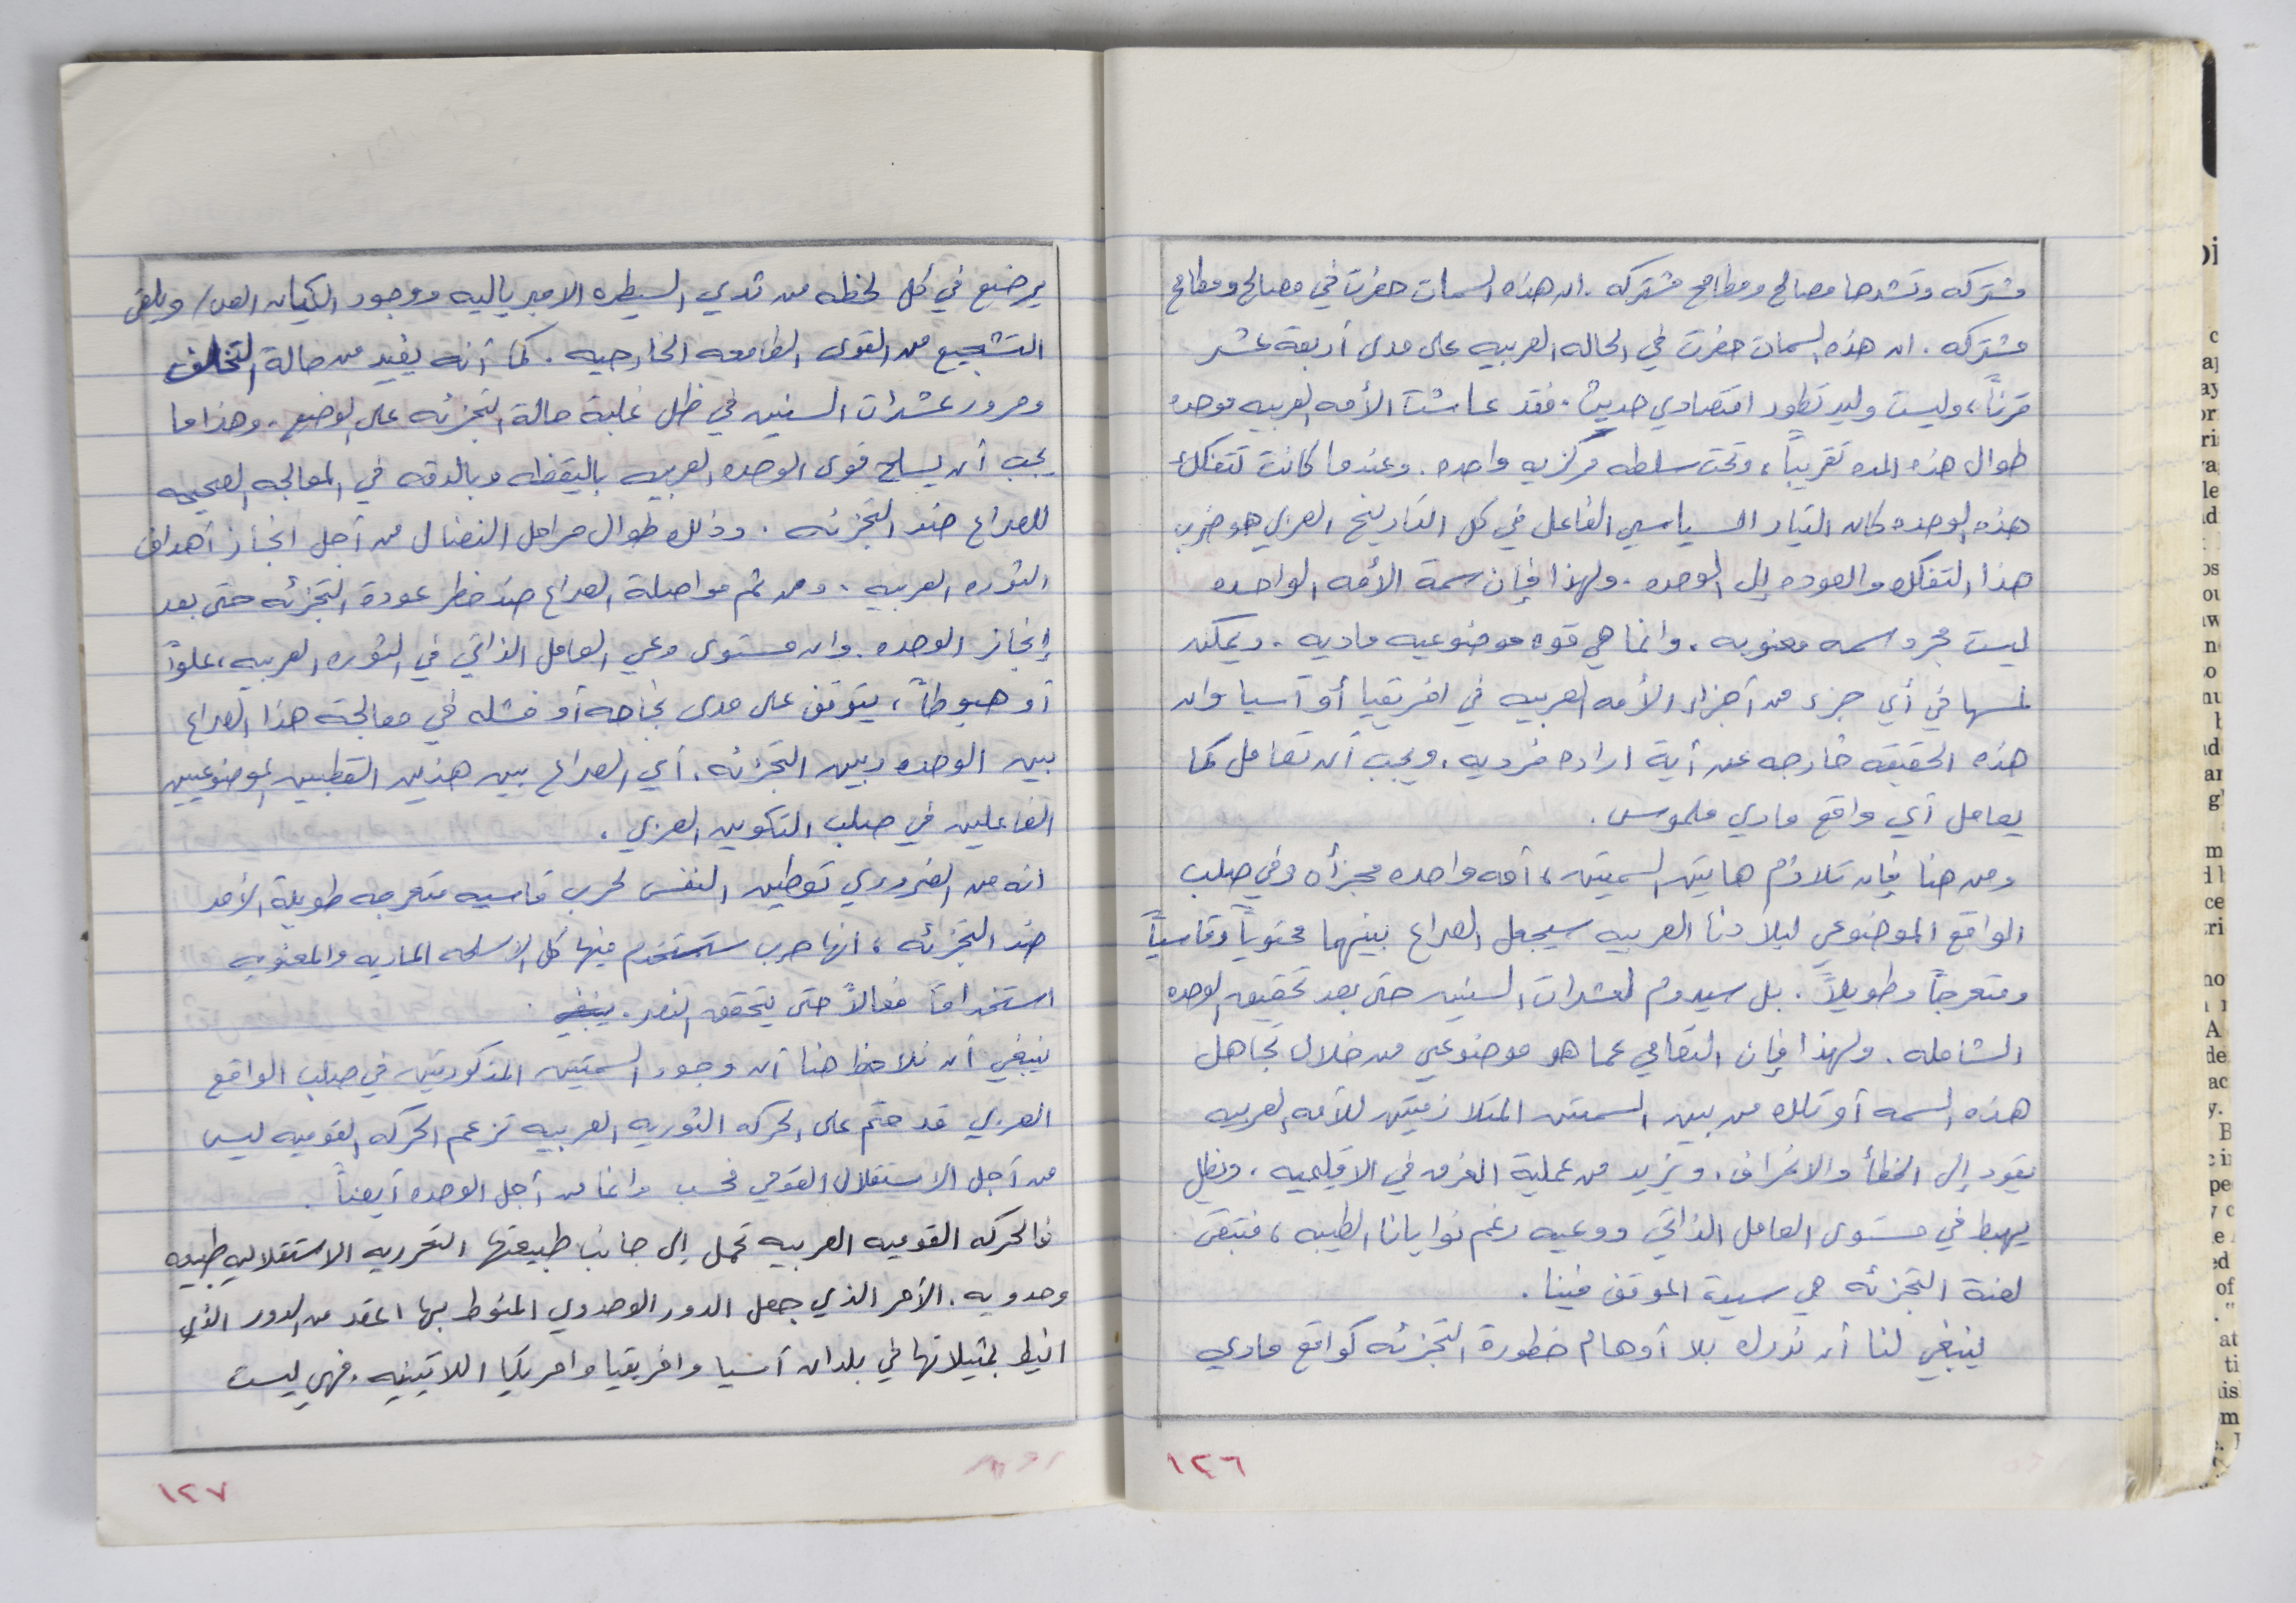 مشتركه وتشدها مصالح ومطامح مشتركه. ان هذه السمات حفرت في مصالح ومطامح
مشتركه. ان هذه السمات حفرت في الحاله العربيه على مدى أربعة عشر
قرناً، وليست وليد تطور اقتصادي حديث. فقد عاشت الأمه العربيه موحده
طوال هذه المده تقريباً، وتحت سلطه مركزيه واحده. وعندما كانت تتفكك
هذه الوحده كان التيار السياسي الفاعل في كل التاريخ العربي هو ضرب
هذا التفكك والعوده إلى الوحده. ولهذا فإن سمة الأمه الواحده
ليست مجرد سمه معنويه، وانما هي قوه موضوعيه ماديه. ويمكن
لمسها في أي جزء من أجزاء الأمه العربيه في افريقيا أو آسيا وان
هذه الحقيقه خارجه عن أية اراده فرديه، ويجب أن تعامل كما
يعامل أي واقع مادي ملموس.
ومن هنا فإن تلازم هاتين السمتين، أمه واحده مجزأه وفي صلب
الواقع الموضوعي لبلادنا العربيه سيجعل الصراع بينهما محتوياً وقاسياً
ومتعرجاً وطويلاً. بل سيدوم لعشرات السنين حتى بعد تحقيق الوحده
الشامله. ولهذا فإن التعامي عما هو موضوعي من خلال تجاهل
هذه السمه أو تلك من بين السمتين المتلازمتين للأمه العربيه
يقود إلى الخطأ والانحراف. ويزيد من عملية الغرق في الاقليميه، ويظل
يهبط في مستوى العامل الذاتي ووعيه رغم نوايانا الطيبه، فتبقى
لعنة التجزئه هي سيدة الموقف فينا.
ينبغي لنا أن ندرك بلا أوهام خطورة التجزئه كواقع مادي
١٢٦
يرضع في كل لحظه من ثدي السيطره الامبرياليه ووجود الكيان العد/ ويلقى
التشجيع من القوى الطامعه الخارجيه. كما أنه يفيد من حالة التخلف
ومرور عشرات السنين في ظل غلبة حالة التجزئه على الوضع. وهذا ما
يجب أن يسلح قوى الوحده العربيه باليقظه وبالدقه في المعالجه الصحيحه
للصراع ضد التجزئه. وذلك طوال مراحل النضال من أجل انجاز أهداف
الثوره العربيه. ومن ثم مواصلة الصراع ضد خطر عودة التجزئه حتى بعد
إنجاز الوحده. وان مستوى وعي العامل الذاتي في الثوره العربيه، علواً
أو هبوطاً، يتوقف على مدى نجاحه أو فشله في معالجة هذا الصراع
بين الوحده وبين التجزئه. أي الصراع بين هذين القطبين الموضوعيين
الفاعلين في صلب التكوين العربي.
انه من الضروري توطين النفس لحرب قاسيه متعرجه طويلة الأمد
ضد التجزئه، انها حرب ستستخدم فيها كل الاسلحه الماديه والمعنويه
استخداماً فعالاً حتى يتحقق النصر. ينبغي
ينبغي أن نلاحظ هنا أن وجود السمتين المذكورتين في صلب الواقع
العربي قد حتم على الحركه الثوريه العربيه تزعم الحركه القوميه ليس
من أجل الاستقلال القومي فحسب وانما من أجل الوحده أيضاً.
فالحركه القوميه العربيه تحمل إلى جانب طبيعتها التحرريه الاستقلاليه طبيعه
وحدويه. الأمر الذي جعل الدور الوحدوي المنوط بها اعقد من الدور الذي
انيط بمثيلاتها في بلدان آسيا وافريقيا وامريكيا اللاتينيه. فهي ليست
١٢٧